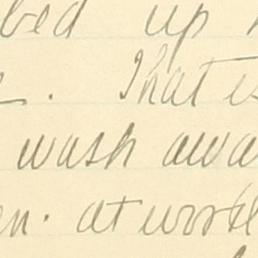 bed up
. That is
wash awa
en. at work